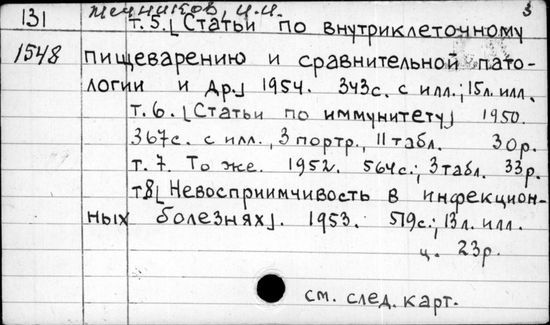 131 Мечников, И.И. 3
т. 5. [Статьи по внутриклеточному
1548 пищеварению и сравнительной пато-
логии и др.] 1954. 343с. с илл.; 15л. илл.
т. 6. [Статьи по иммунитету] 1950.
367с. с илл., 3 портр., 11 табл. 30р.
т. 7. То же. 1952. 564с.; 3 табл. 33р.
т8[Невосприимчивость в инфекцион-
ных болезнях]. 1953. 519с.; 13л. илл.
ц. 23р.
см. след. карт.